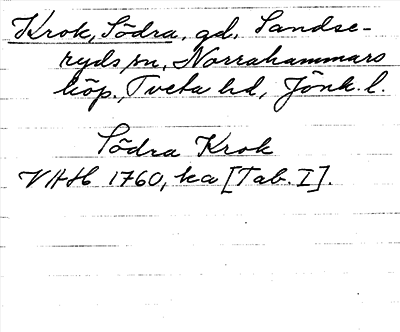 Krok, Södra, gd, Sandse-
ryds sn, Norrahammars
köp., Tveta hd, Jönk. l.
Södra Krok
VHH 1760, ka [Tab. I].